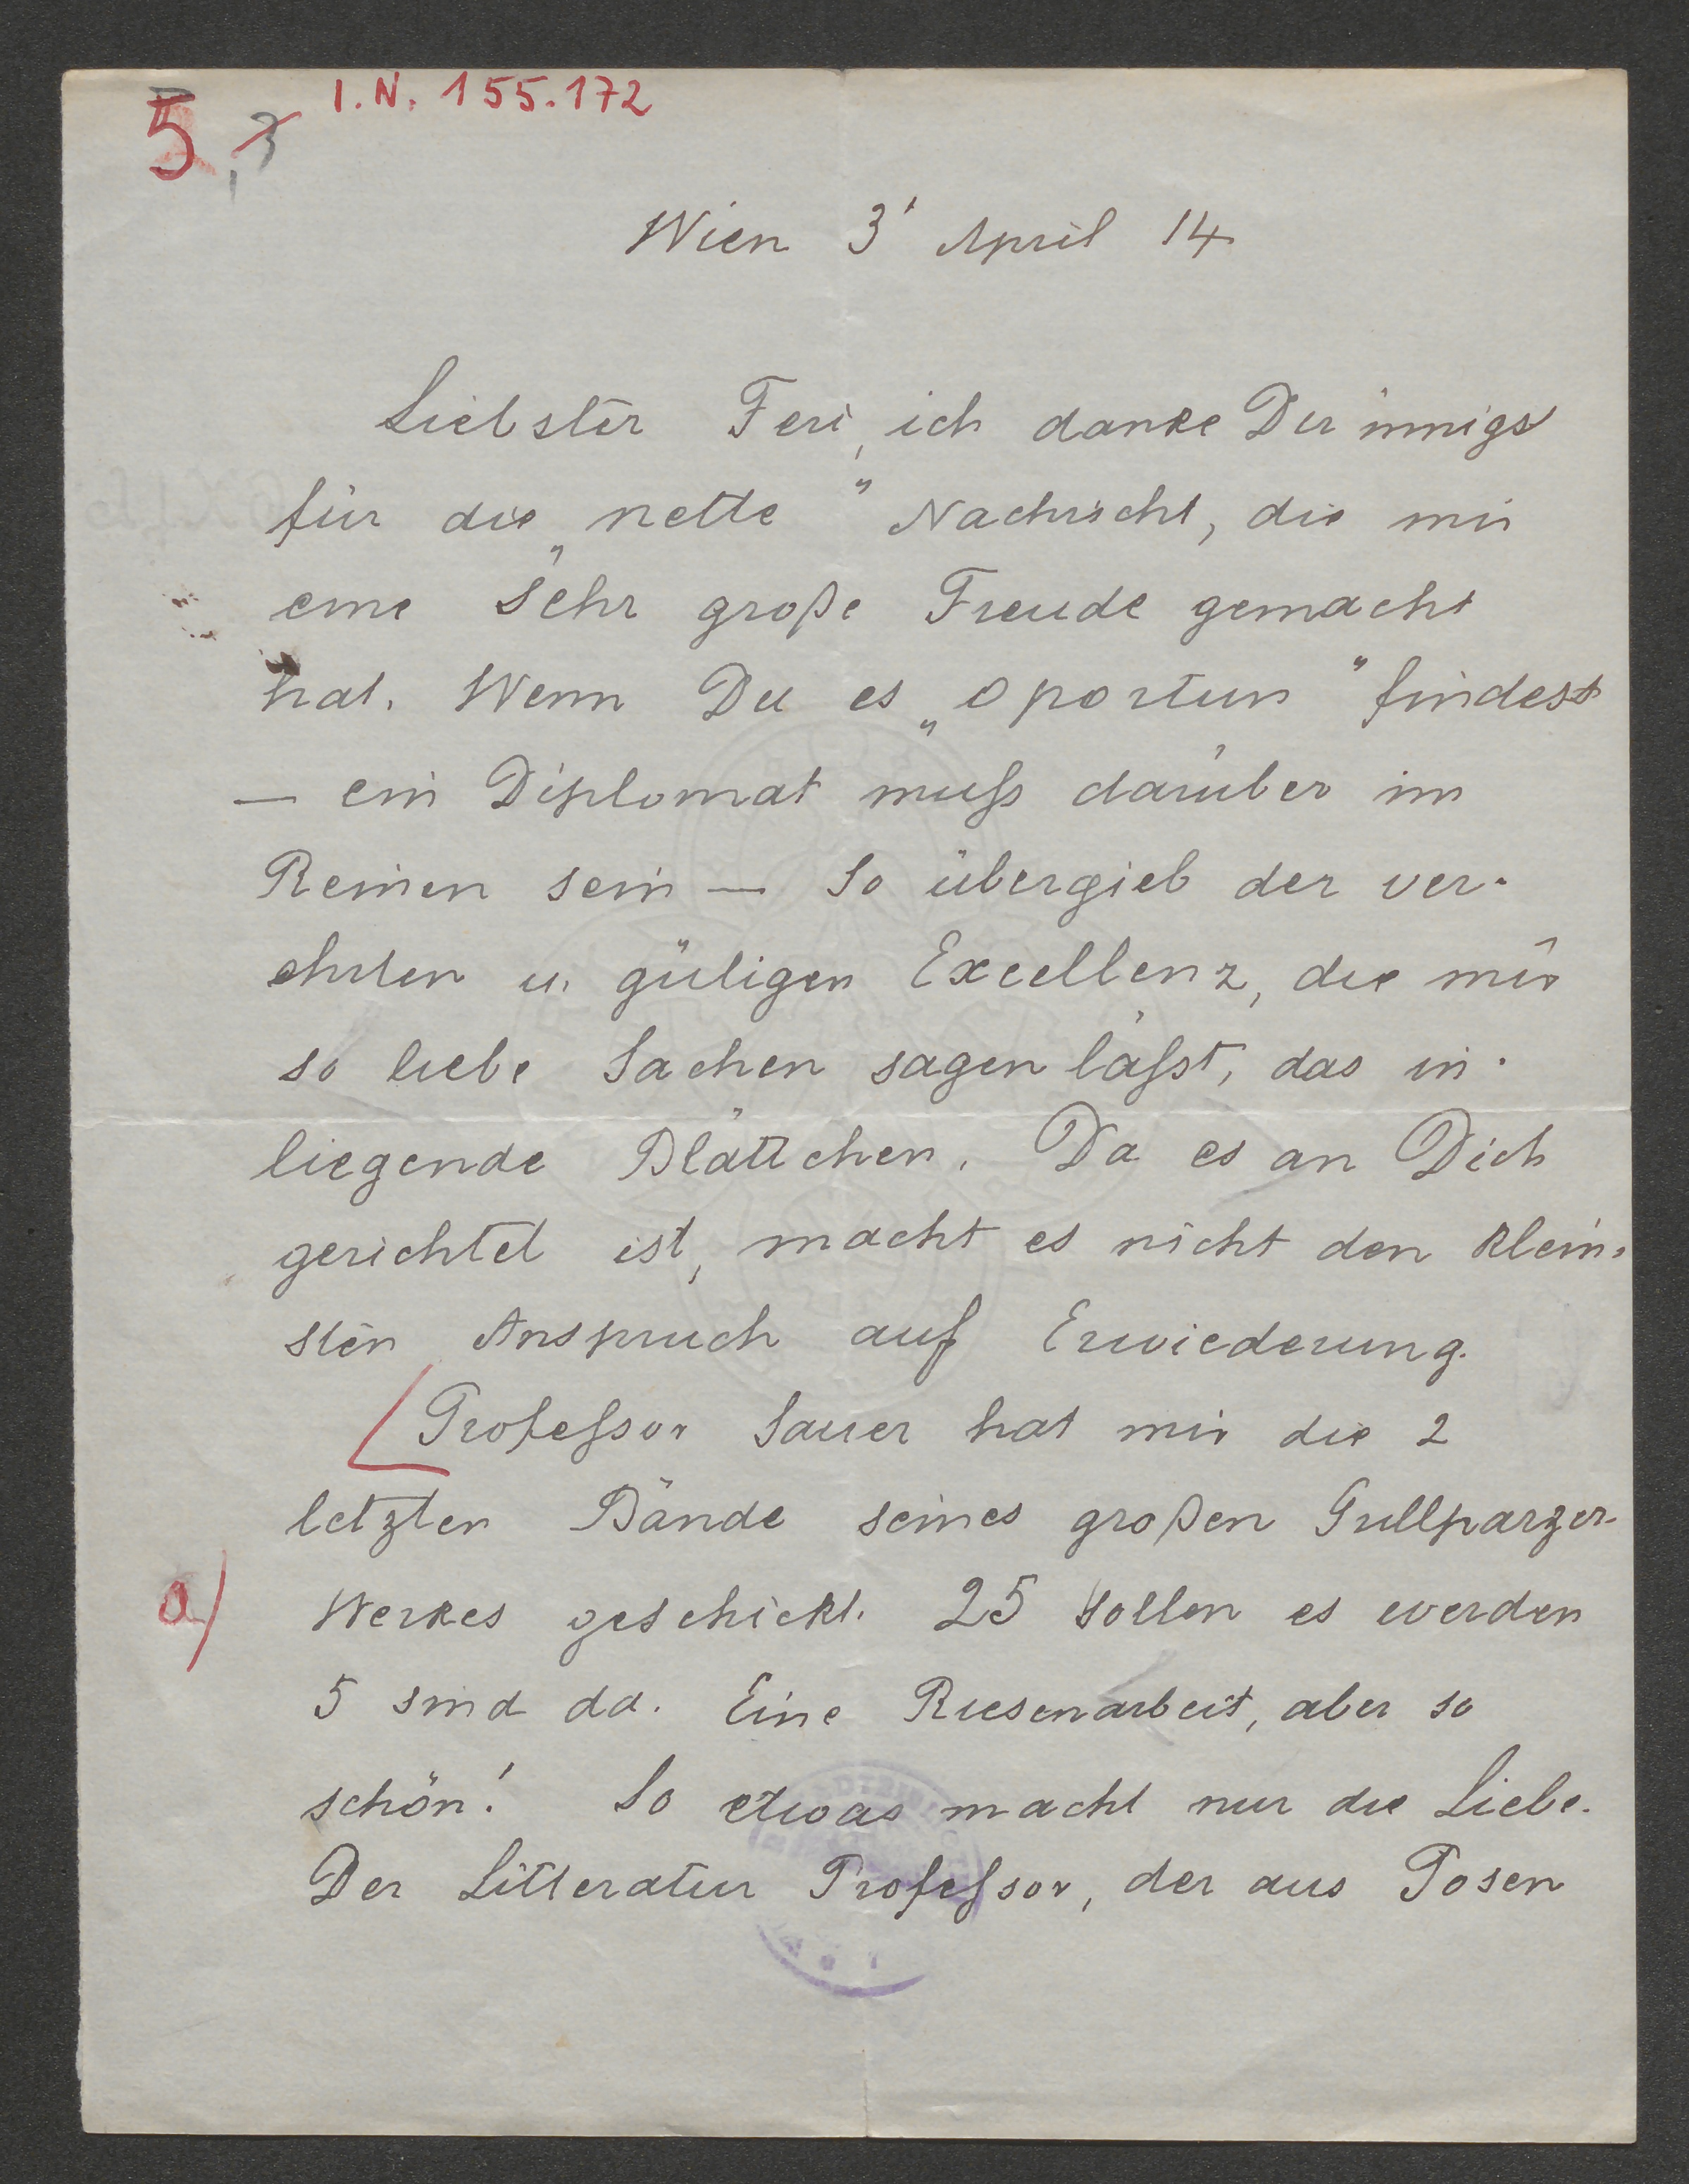 I.N. 155.172
5, 3
Wien 3' April 14
Liebster Feri, ich danke Dir innigst
für die „nette" Nachricht, die mir
eine sehr große Freude gemacht
hat. Wenn Du es „oportun" findest
— ein Diplomat muß darüber im
Reinen sein — so übergieb der ver-
ehrten u. gütigen Excellenz, die mir
so liebe Sachen sagen läßst, das in-
liegende Blättchen. Da es an Dich
gerichtet ist, macht es nicht den klein-
sten Anspruch auf Erwiederung.
Professor Sauer hat mir die 2
letzten Bände seines großen Grillparzer-
a) Werkes geschickt. 25 sollen es werden
5 sind da. Eine Riesenarbeit, aber so
schön! So etwas macht nur die Liebe.
Der Litteratur Professor, der aus Posen